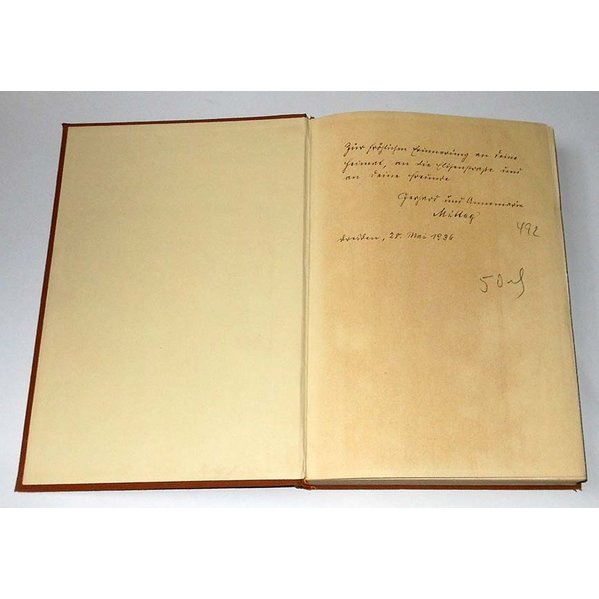 Zur fröhlichen Erinnerung an deine
Heimat, an die Elisenstraße und
an deine Freunde
Gerhard und Annemarie
Mittag
492
Dresden, 25. Mai 1936
50